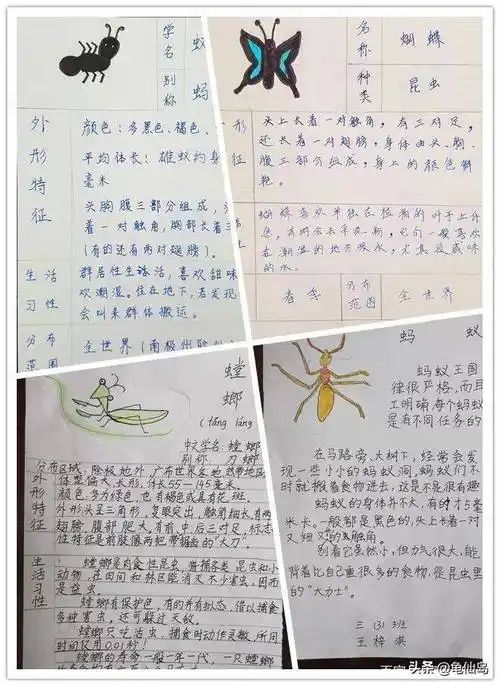 学名
蚁
别称
蚂
外形特征
颜色：多黑色、褐色、
平均体长：雄蚁约身
毫米
头胸腹三部分组成，
着一对触角，胸部长着三
(有的还有两对翅膀)。
生活习性
群居性生活，喜欢甜味
欢潮湿。住在地下，若发现
会叫来群体搬运。
分布范围
全世界(南极州除外
名称
蝴蝶
种类
昆虫
形
征
头上长着一对触角，有三对足，
还长着一对翅膀，身体由头、胸、
腹三部分组成，身上的颜色鲜
艳。
蝴蝶喜欢单独在植物的叶子上休
在潮湿的地方吸水，尤其是咸味
的水。
分布范围
全世界
螳螂
(táng láng
中文学名：螳螂
别称：刀螂
分布区域：除极地外，广布世界各地，热带地区
外形特征
体型偏大，长形，体长55—145毫米，
颜色：多为绿色，也有褐色或具有花斑。
外形头呈三角形，复眼突出，触角细长，有两
翅膀，腹部肥大，有前、中、后三对足，标志
性特征是前肢像两把带锯齿的“大刀”。
生活习性
螳螂是肉食性昆虫，猎捕各类昆虫和小
动物，在田间和林区能消灭不少害虫，因而
是益虫。
螳螂有保护色，有的并有拟态，借以捕食
多种害虫，还可躲过天敌。
螳螂只吃活虫，捕食时动作灵敏，所用
时间仅用0.01秒！
螳螂的寿命一般一年一代，一只螳螂
蚂蚁
蚂蚁王国
律很严格，而且
工明确，每个蚂蚁
是有不同任务的
在马路旁、大树下，经常会发
现一些小小的蚂蚁洞，蚂蚁们不
时就搬着食物进去，这是不是很有趣
蚂蚁的身体并不大，有的才5毫
米长。一般都是黑色的，头上长着一对
又细又的触角。
别看它虽然小，但力气很大，能
背着比自己重很多的食物，是昆虫里
的“大力士”。
三(3)班
王梓淇
头条@龟仙岛